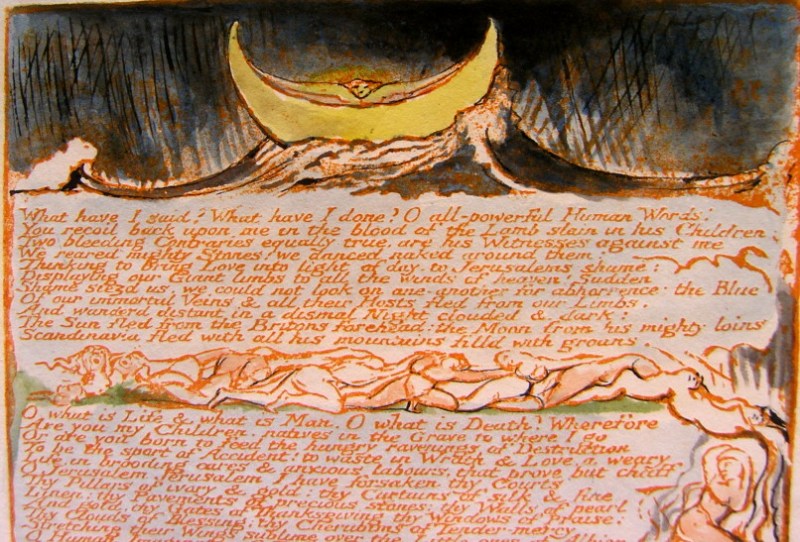 What have I said? What have I done? O all-powerful Human Words:
You recoil back upon me in the blood of the Lamb slain in his Children
Two bleeding Contraries equally true, are his Witnesses against me
We reared mighty Stones: we danced naked around them:
Thinking to bring Love into light of day, to Jerusalems shame:
Displaying our Giant limbs to all the winds of heaven: Sudden
Shame seizd us, we could not look on one-another for abhorrence: the Blue
Of our immortal Veins & all their Hosts fled from our Limbs,
And wanderd distant in a dismal Night clouded & dark:
The Sun fled from the Britons forehead: the Moon from his mighty loins:
Scandinavia fled with all his mountains filld with groans.
O what is Life & what is Man. O what is Death? Wherefore
Are you my Children, natives in the Grave to where I go
Or are you born to feed the hungry ravenings of Destruction
To be the sport of Accident! to waste in Wrath & Love, a weary
Life, in brooding cares & anxious labours, that prove but chaff.
O Jerusalem Jerusalem I have forsaken thy Courts
Thy Pillars of ivory & gold: thy Curtains of silk & fine
Linen: thy Pavements of precious stones: thy Walls of pearl
And gold, thy Gates of Thanksgiving thy Windows of Praise:
Thy Clouds of Blessing; thy Cherubims of Tender-mercy
Stretching their Wings sublime over the Little-ones of Albion
O Human